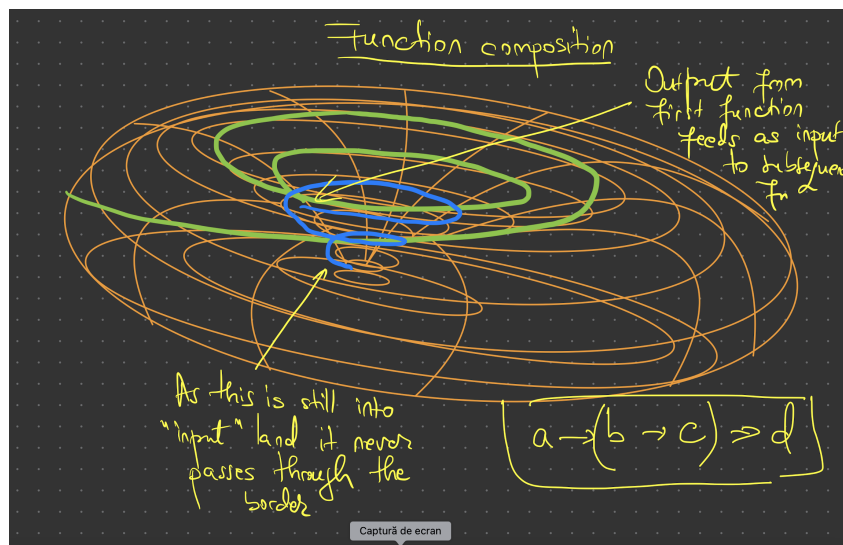 Function composition
Output from
first function
feeds as input
to subsequen
fn 2
As this is still into
"input" land it never
passes through the
border
a → (b → c) → d
Captură de ecran